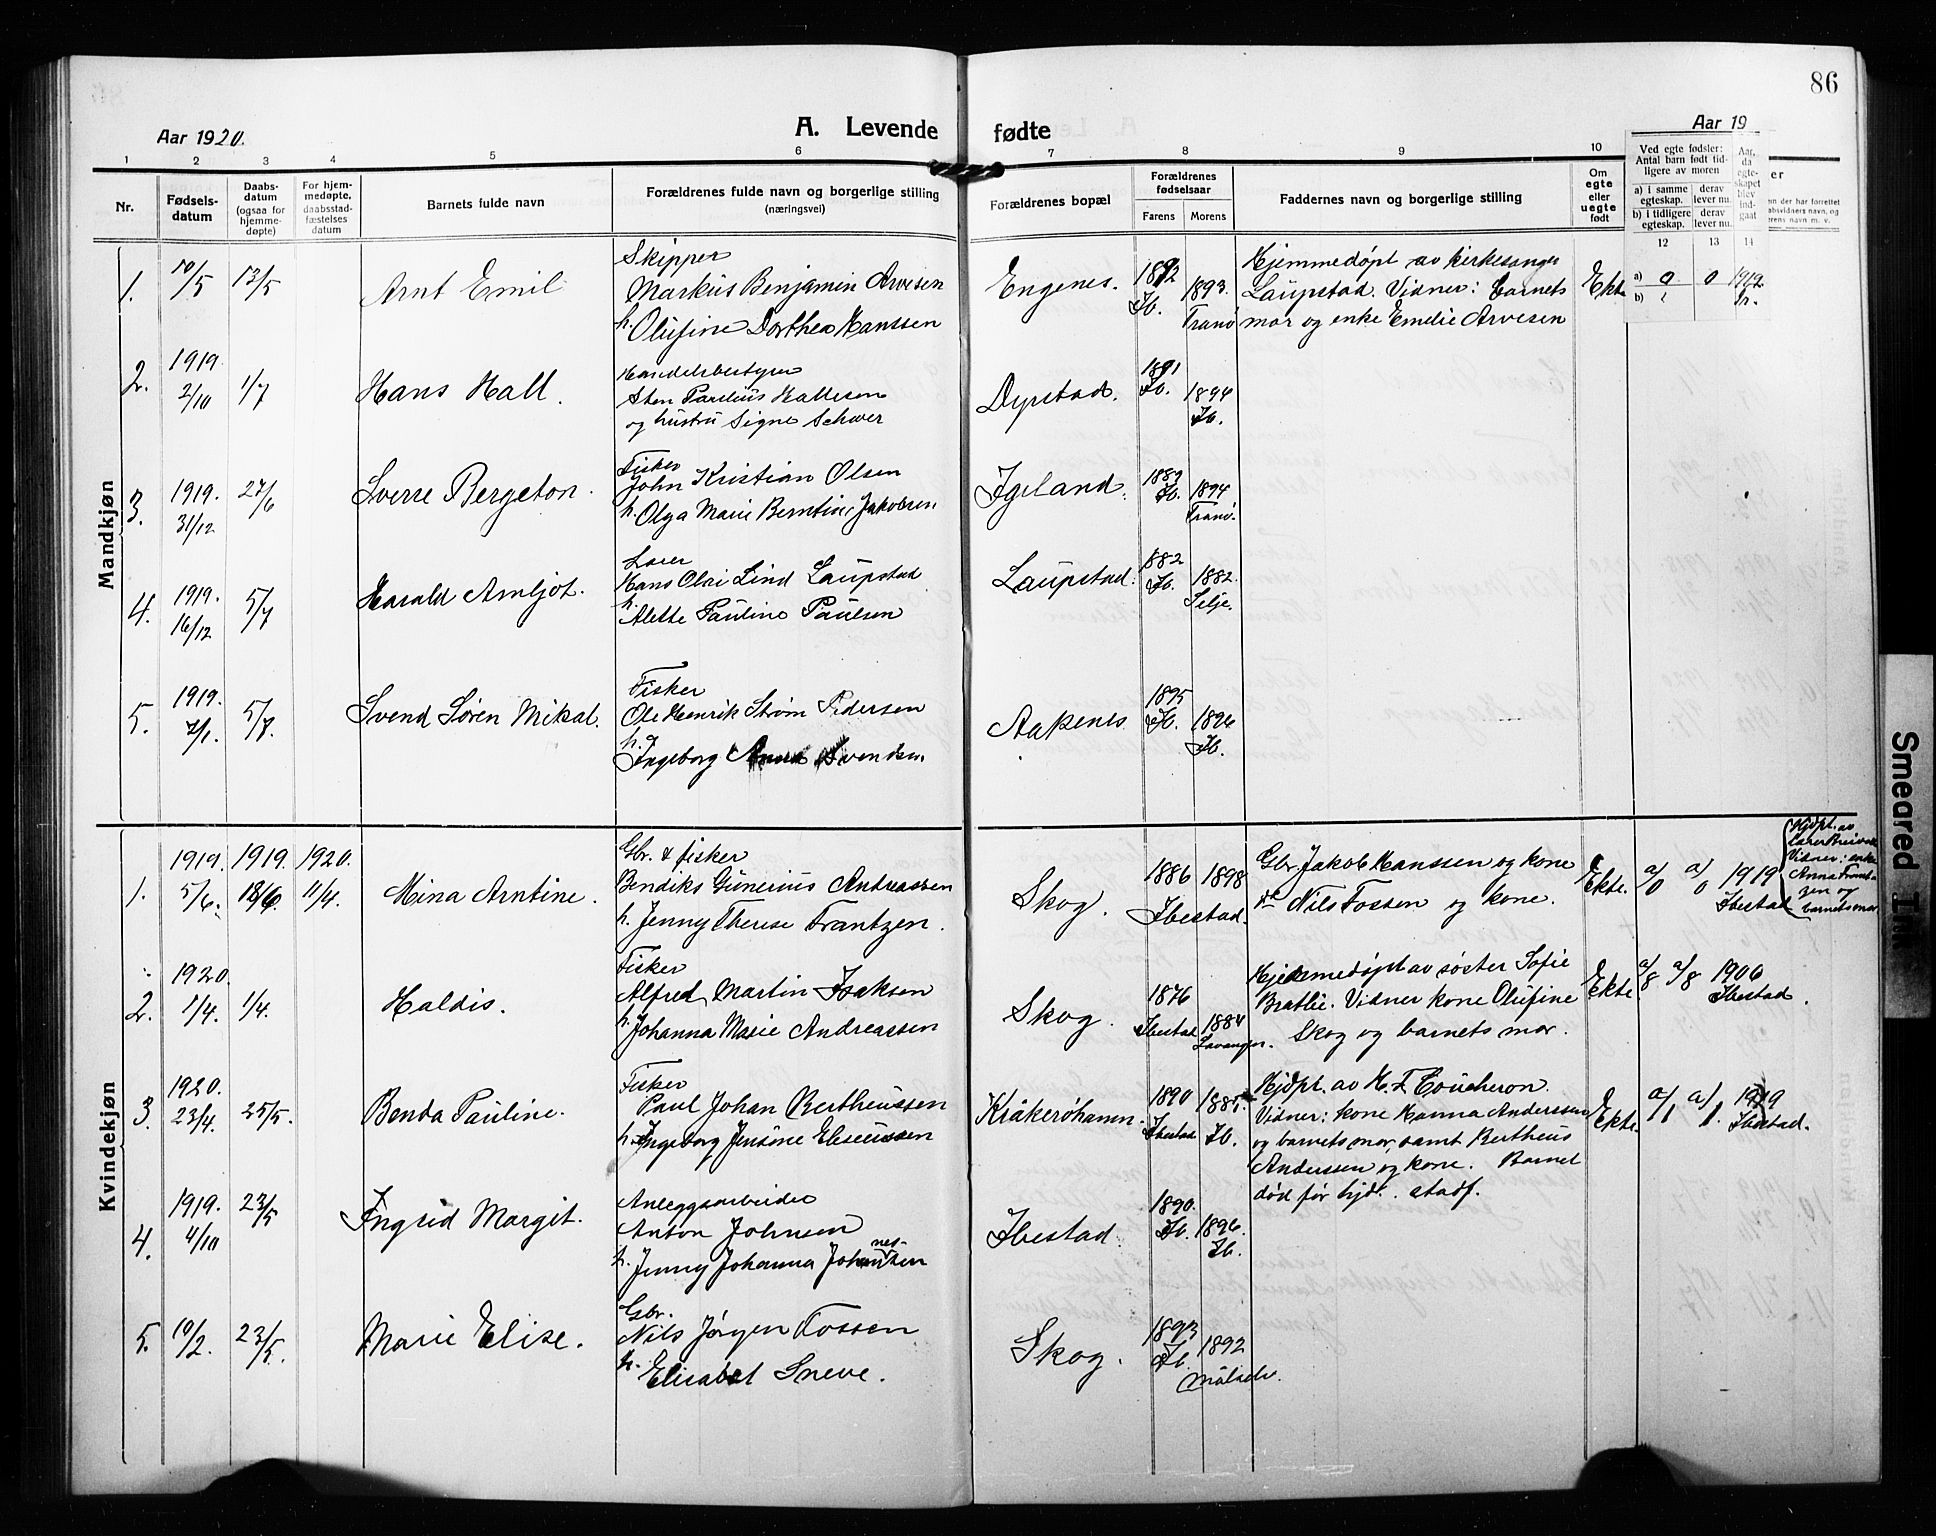 86
Aar 1920.
A. Levende fødte
Aar 19
1 2 3 4 5 6 7 8 9 10 12 13 14
Nr.
Fødsels-datum
Daabs-datum (ogsaa for hjemme-døpte)
For hjem-medøpte, daabsstad-fæstelses datum
Barnets fulde navn
Forældrenes fulde navn og borgerlige stilling (næringsvei)
Forældrenes bopæl
Forældrenes fødselsaar
Farens Morens
Faddernes navn og borgerlige stilling
Om egte eller uegte født
Ved egte fødsler: Antal barn født tid-ligere av moren
a) i samme egteskap.
b) i tidligere egteskap.
derav lever nu.
derav lever nu.
Aar, da egte-skapet blev ind-gaat
Mandkjøn
1. 10/5 13/5 Arnt Emil
Skipper
Markus Benjamin Arvesen
h. Olufine Dorthea Hanssen
Engenes. 1892 Ib. 1893. Tranø
Hjemmedøpt av kirkesanger
Laupstad. Vidner: Barnets
mor og enke Emelie Arvesen
Ekte a) 0 0 1919
b)
2. 1919. 2/10 1/7 Hans Hall.
Handelsbestyrer
Sten Parelius Hallesen
og hustru Signe Schwer
Dyrstad. 1891 Ib. 1894 Ib.
3. 1919. 31/12 27/6 Sverre Bergeton.
Fisker
John Kristian Olsen
h. Olga Marie Berntine Jakobsen
Igeland. Ib. 1894 Tranø.
4. 1919. 16/12 5/7 Harald Arnljot.
Lærer
Hans Olai Lind Laupstad
h. Alette Pauline Paulsen
Laupstad. 1882 Ib. 1882. Selje.
5. 1919. 5/7. Svend Søren Mikal.
Fisker
Ole Henrik Strøm Pedersen
h. Ingeborg Anna Svendsen.
Aakenes 1895 Ib. Ib.
Kvindekjøn
1. 1919. 5/6. 1919. 18/6 1920. 11/4. Mina Arntine.
Gbr. & fisker
Bendiks Gunerius Andreassen
h. Jenny Therese Frantzen.
Skog. 1886 1898 Ibestad.
Gbr. Jakob Hanssen og kone
Nils Fossen og kone.
Ekte. a/0 a/0 1919 Ibestad
Hjdpt. av
Vidner: enke
Anna Frantzen og
barnets mor
2. 1920. 1/4. 1/4. Haldis.
Fisker
Alfred Martin Isaksen
h. Johanna Marie Andreassen
Skog. 1876 Ibestad 1884 Lavangen.
Hjemmedøpt av søster Sofie
Bratlie. Vidner kone Olufine
Skog og barnets mor.
Ekte. a/8 a/8 1906 Ibestad.
3. 1920. 23/4. 25/5. Benda Pauline.
Fisker
Paul Johan Bertheussen
h. Ingeborg Jensine Eliseussen
Kråkerøhamn. 1890 Ibestad Ib.
Hjdpt. av H. F. Coucheron.
Vidner: kone Hanna Anderssen
og barnets mor, samt Bertheus
Anderssen og kone. Barnet
død før hjd. stadf.
Ekte. a/1 a/1. 1919 Ibestad.
4. 1919. 4/10 23/5 Ingrid Margit.
Anleggsarbeider
Anton Johnsen
h. Jenny Johanna
Ibestad. 1890. Ib. 1896. Ib.
5. 10/2. 23/5. Marie Elise.
Gbr.
Nils Jørgen Fossen
h. Elisabet Sneve.
Skog. 1893 Ib. 1892 Målselv.
Smeared Ink